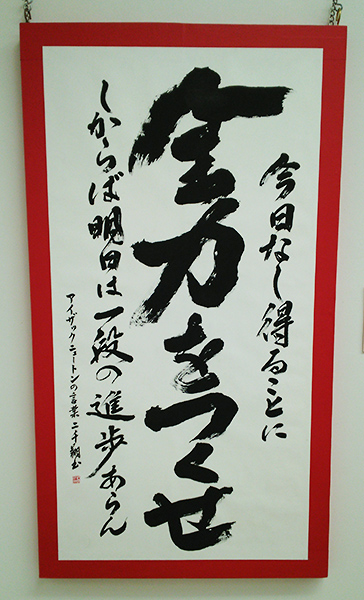 今日なし得ることに
全力をつくせ
しからば明日は一段の進歩あらん
アイザックニュートンの言葉